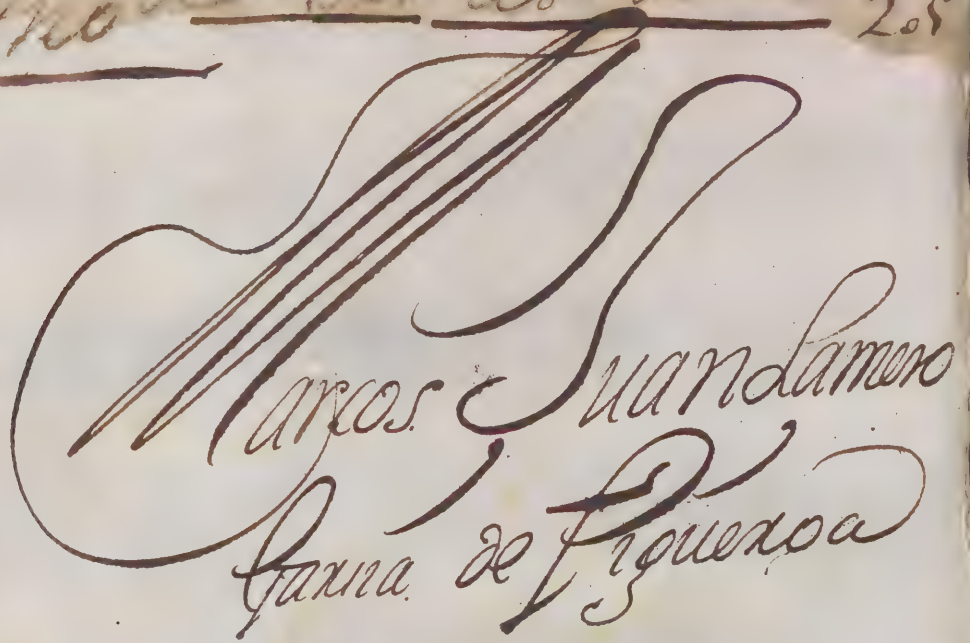 Marcos Juan Lamero
Garzia de Figueroa